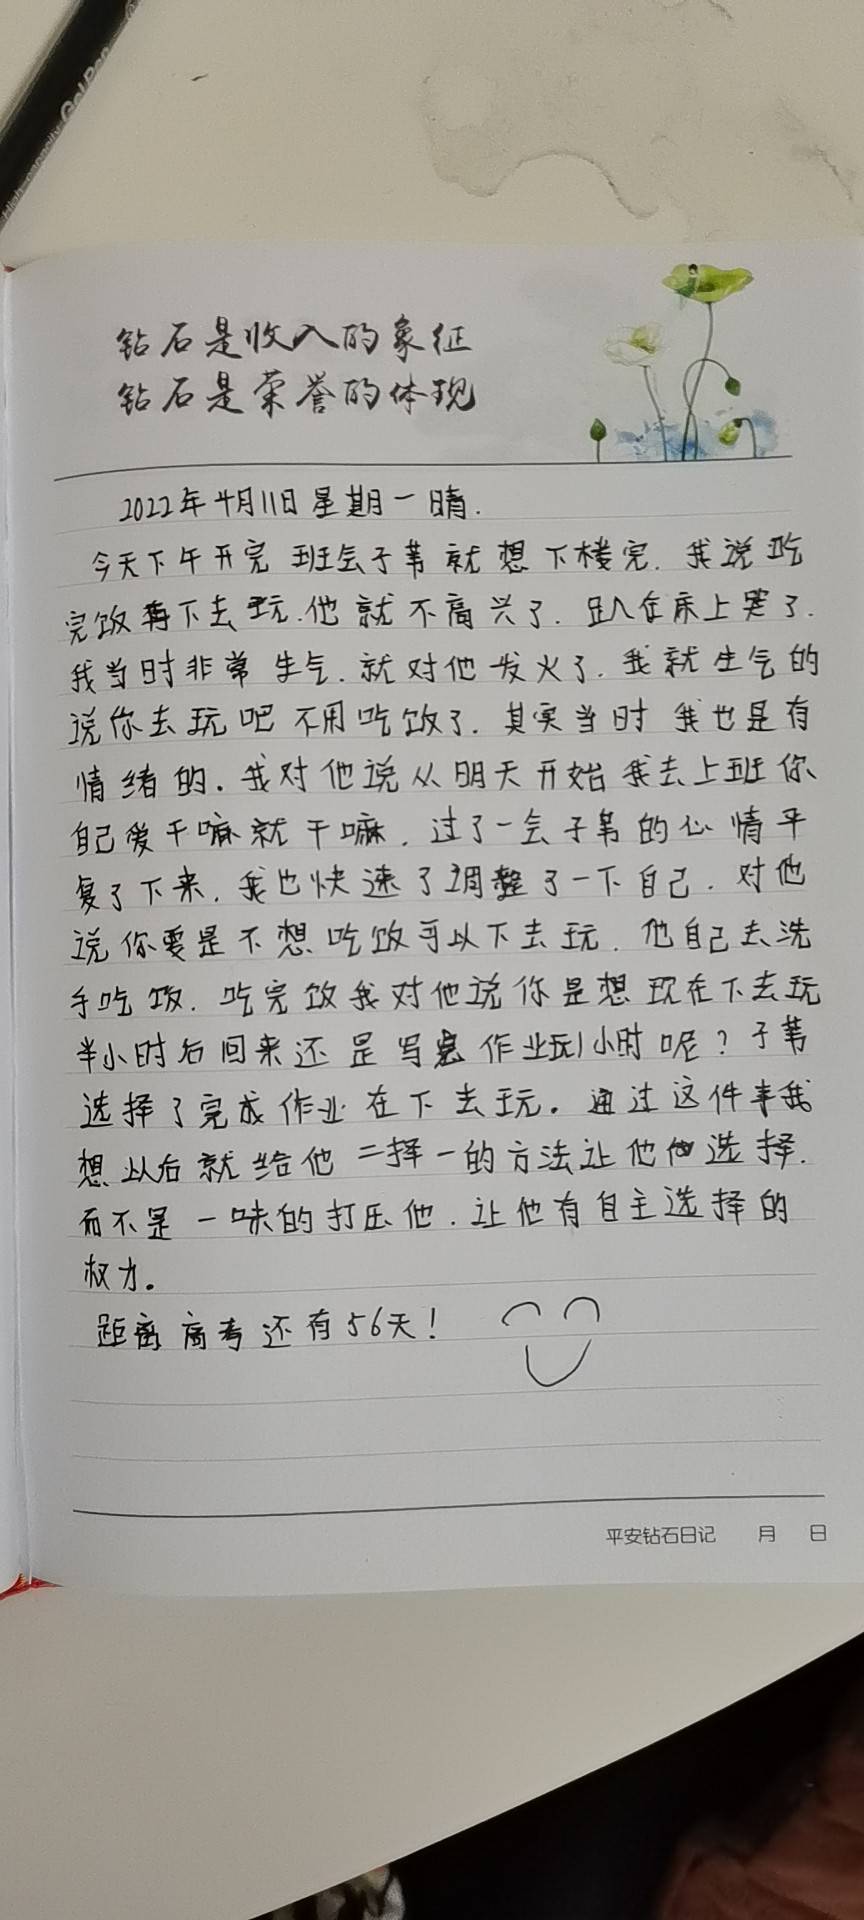 Gel Pen
钻石是收入的象征
钻石是荣誉的体现
2022年4月11日星期一晴.
今天下午开完班会子苇就想下楼完.我说吃
完饭再下去玩.他就不高兴了.趴在床上哭了.
我当时非常生气.就对他发火了.我就生气的
说你去玩吧不用吃饭了.其实当时我也是有
情绪的.我对他说从明天开始我去上班你
自己爱干嘛就干嘛.过了一会子苇的心情平
复了下来.我也快速了调整了一下自己.对他
说你要是不想吃饭可以下去玩.他自己去洗
手吃饭.吃完饭我对他说你是想现在下去玩
半小时后回来还是写完作业玩1小时呢?子苇
选择了完成作业在下去玩。通过这件事我
想以后就给他二择一的方法让他选择.
而不是一味的打压他.让他有自主选择的
权力。
距离高考还有56天!
平安钻石日记 月 日